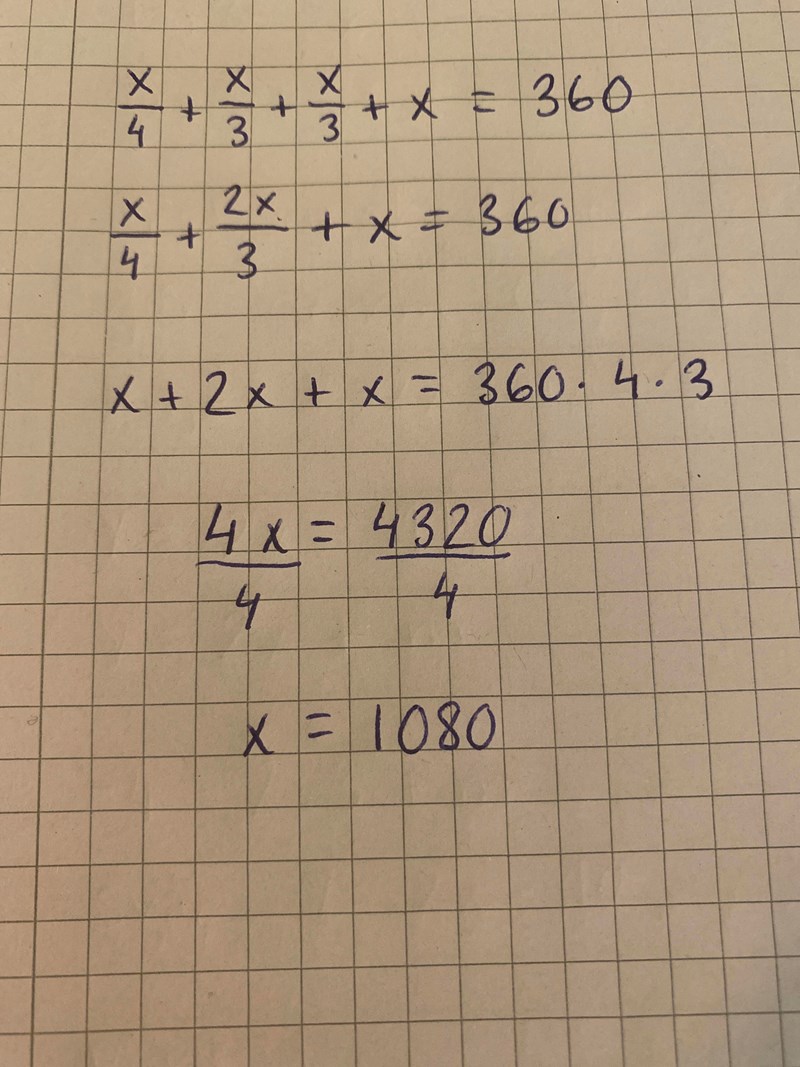 x/4 + x/3 + x/3 + x = 360
x/4 + 2x/3 + x = 360
x + 2x + x = 360 · 4 · 3
4x/4 = 4320/4
x = 1080